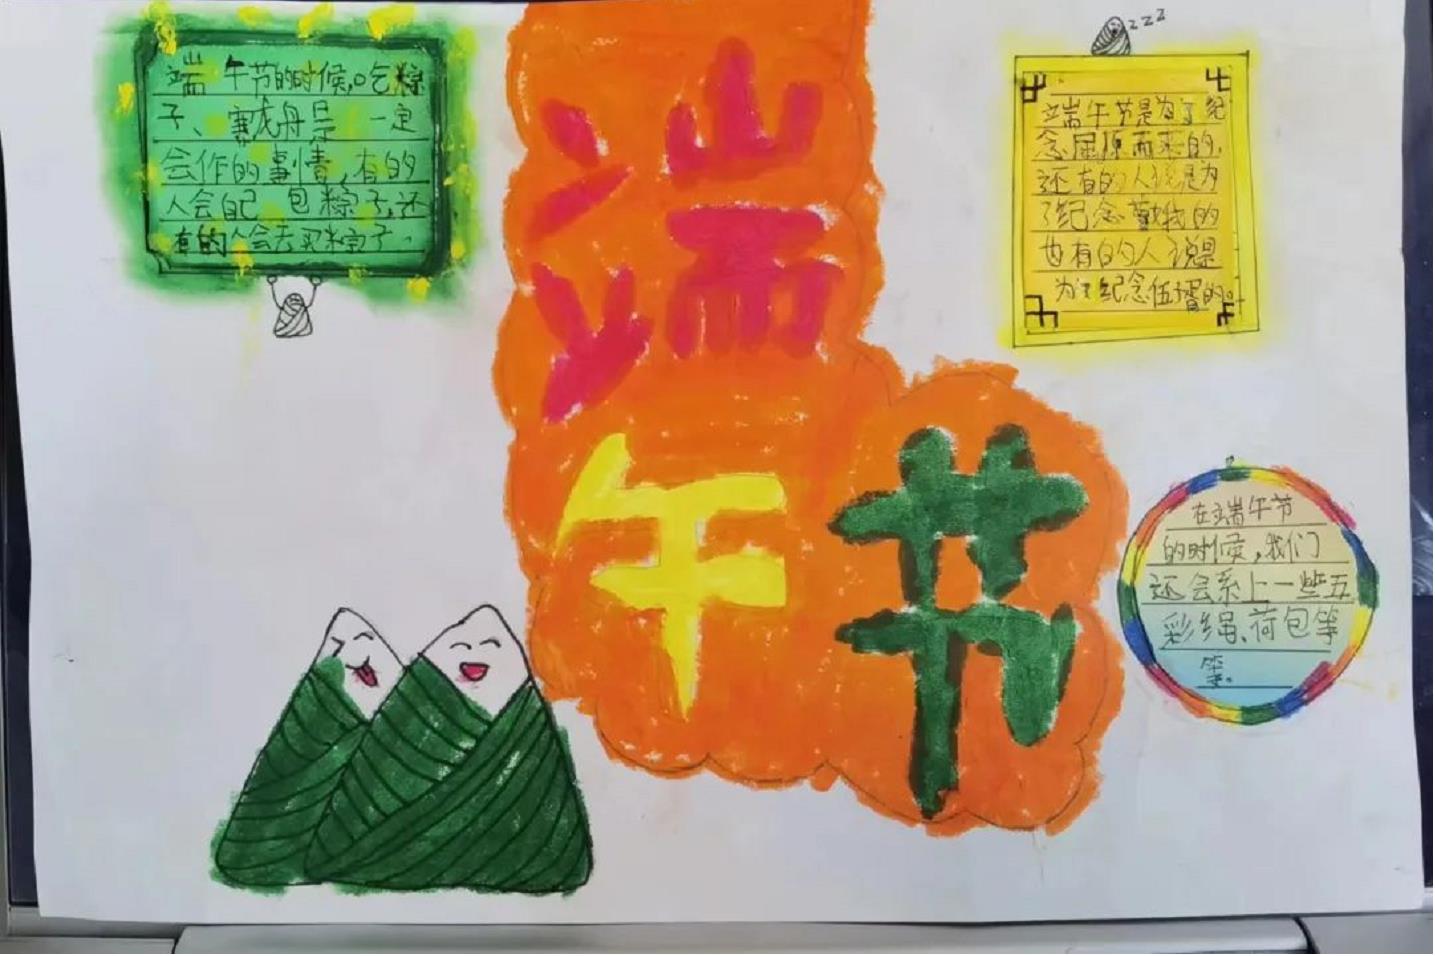 端午节的时候,吃粽
子、赛龙舟是一定
会作的事情,有的
人会自己包粽子,还
有的人会去买粽子.
端
午节
zzz
端午节是为了纪
念屈原而来的,
还有的人说是为
了纪念的
也有的人说是
为了纪念伍子胥的。
在端午节
的时候,我们
还会系上一些五
彩绳、荷包等
等。